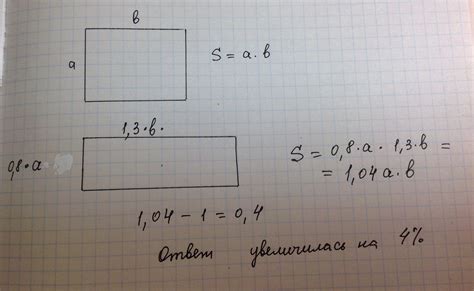 b
a
S = a·b
1,3·b·
0,8·a
S = 0,8·a · 1,3·b =
= 1,04 a·b
1,04 - 1 = 0,4
Ответ увеличилась на 4%